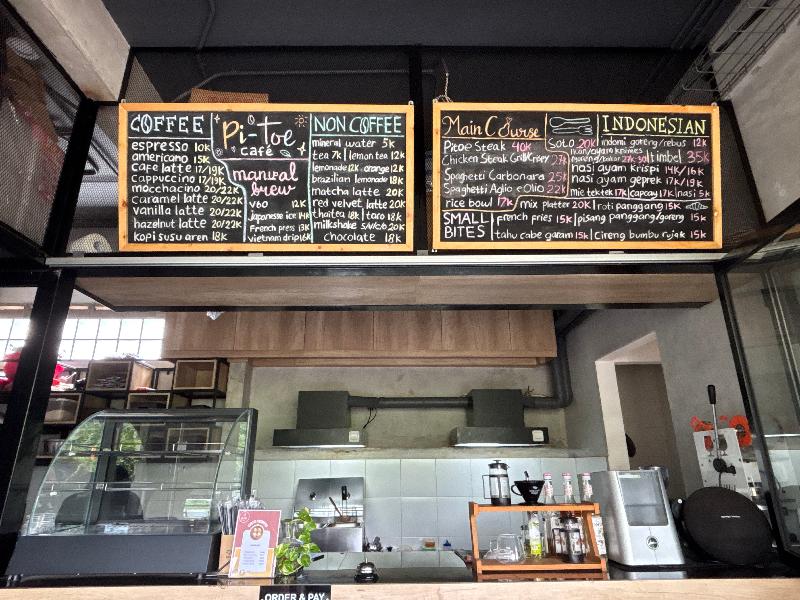 COFFEE
espresso 10K
americano 15K
cafe latte 17/19K
cappuccino 17/19K
mocchacino 20/22K
caramel latte 20/22K
vanilla latte 20/22K
hazelnut latte 20/22K
kopi susu aren 18K
Pi-toe
café
manual
brew
V60 12K
Japanese ice 14K
French press 13K
vietnam drip 16K
NON COFFEE
mineral water 5K
tea 7K | lemon tea 12K
lemonade 12K orange 12K
brazilian lemonade 18K
matcha latte 20K
red velvet latte 20K
thai tea 18K | taro 18K
milkshake S/V/C/O 20K
chocolate 18K
Main Course
Pitoe Steak 40K
Chicken Steak Grill/Crispy
Spaghetti Carbonara 25K
Spaghetti Aglio e Olio 22K
rice bowl 17K
mix platter 20K
SOTO 20K
INDONESIAN
indomi goreng/rebus 12K
timbel 35K
nasi ayam krispi 14K/16K
nasi ayam geprek 17K/19K
mie tektek 17K | capcay 17K | nasi 5K
roti panggang 15K
SMALL
BITES
french fries 15K | pisang panggang/goreng 15K
tahu cabe garam 15K | Cireng bumbu rujak 15K
ORDER & PAY